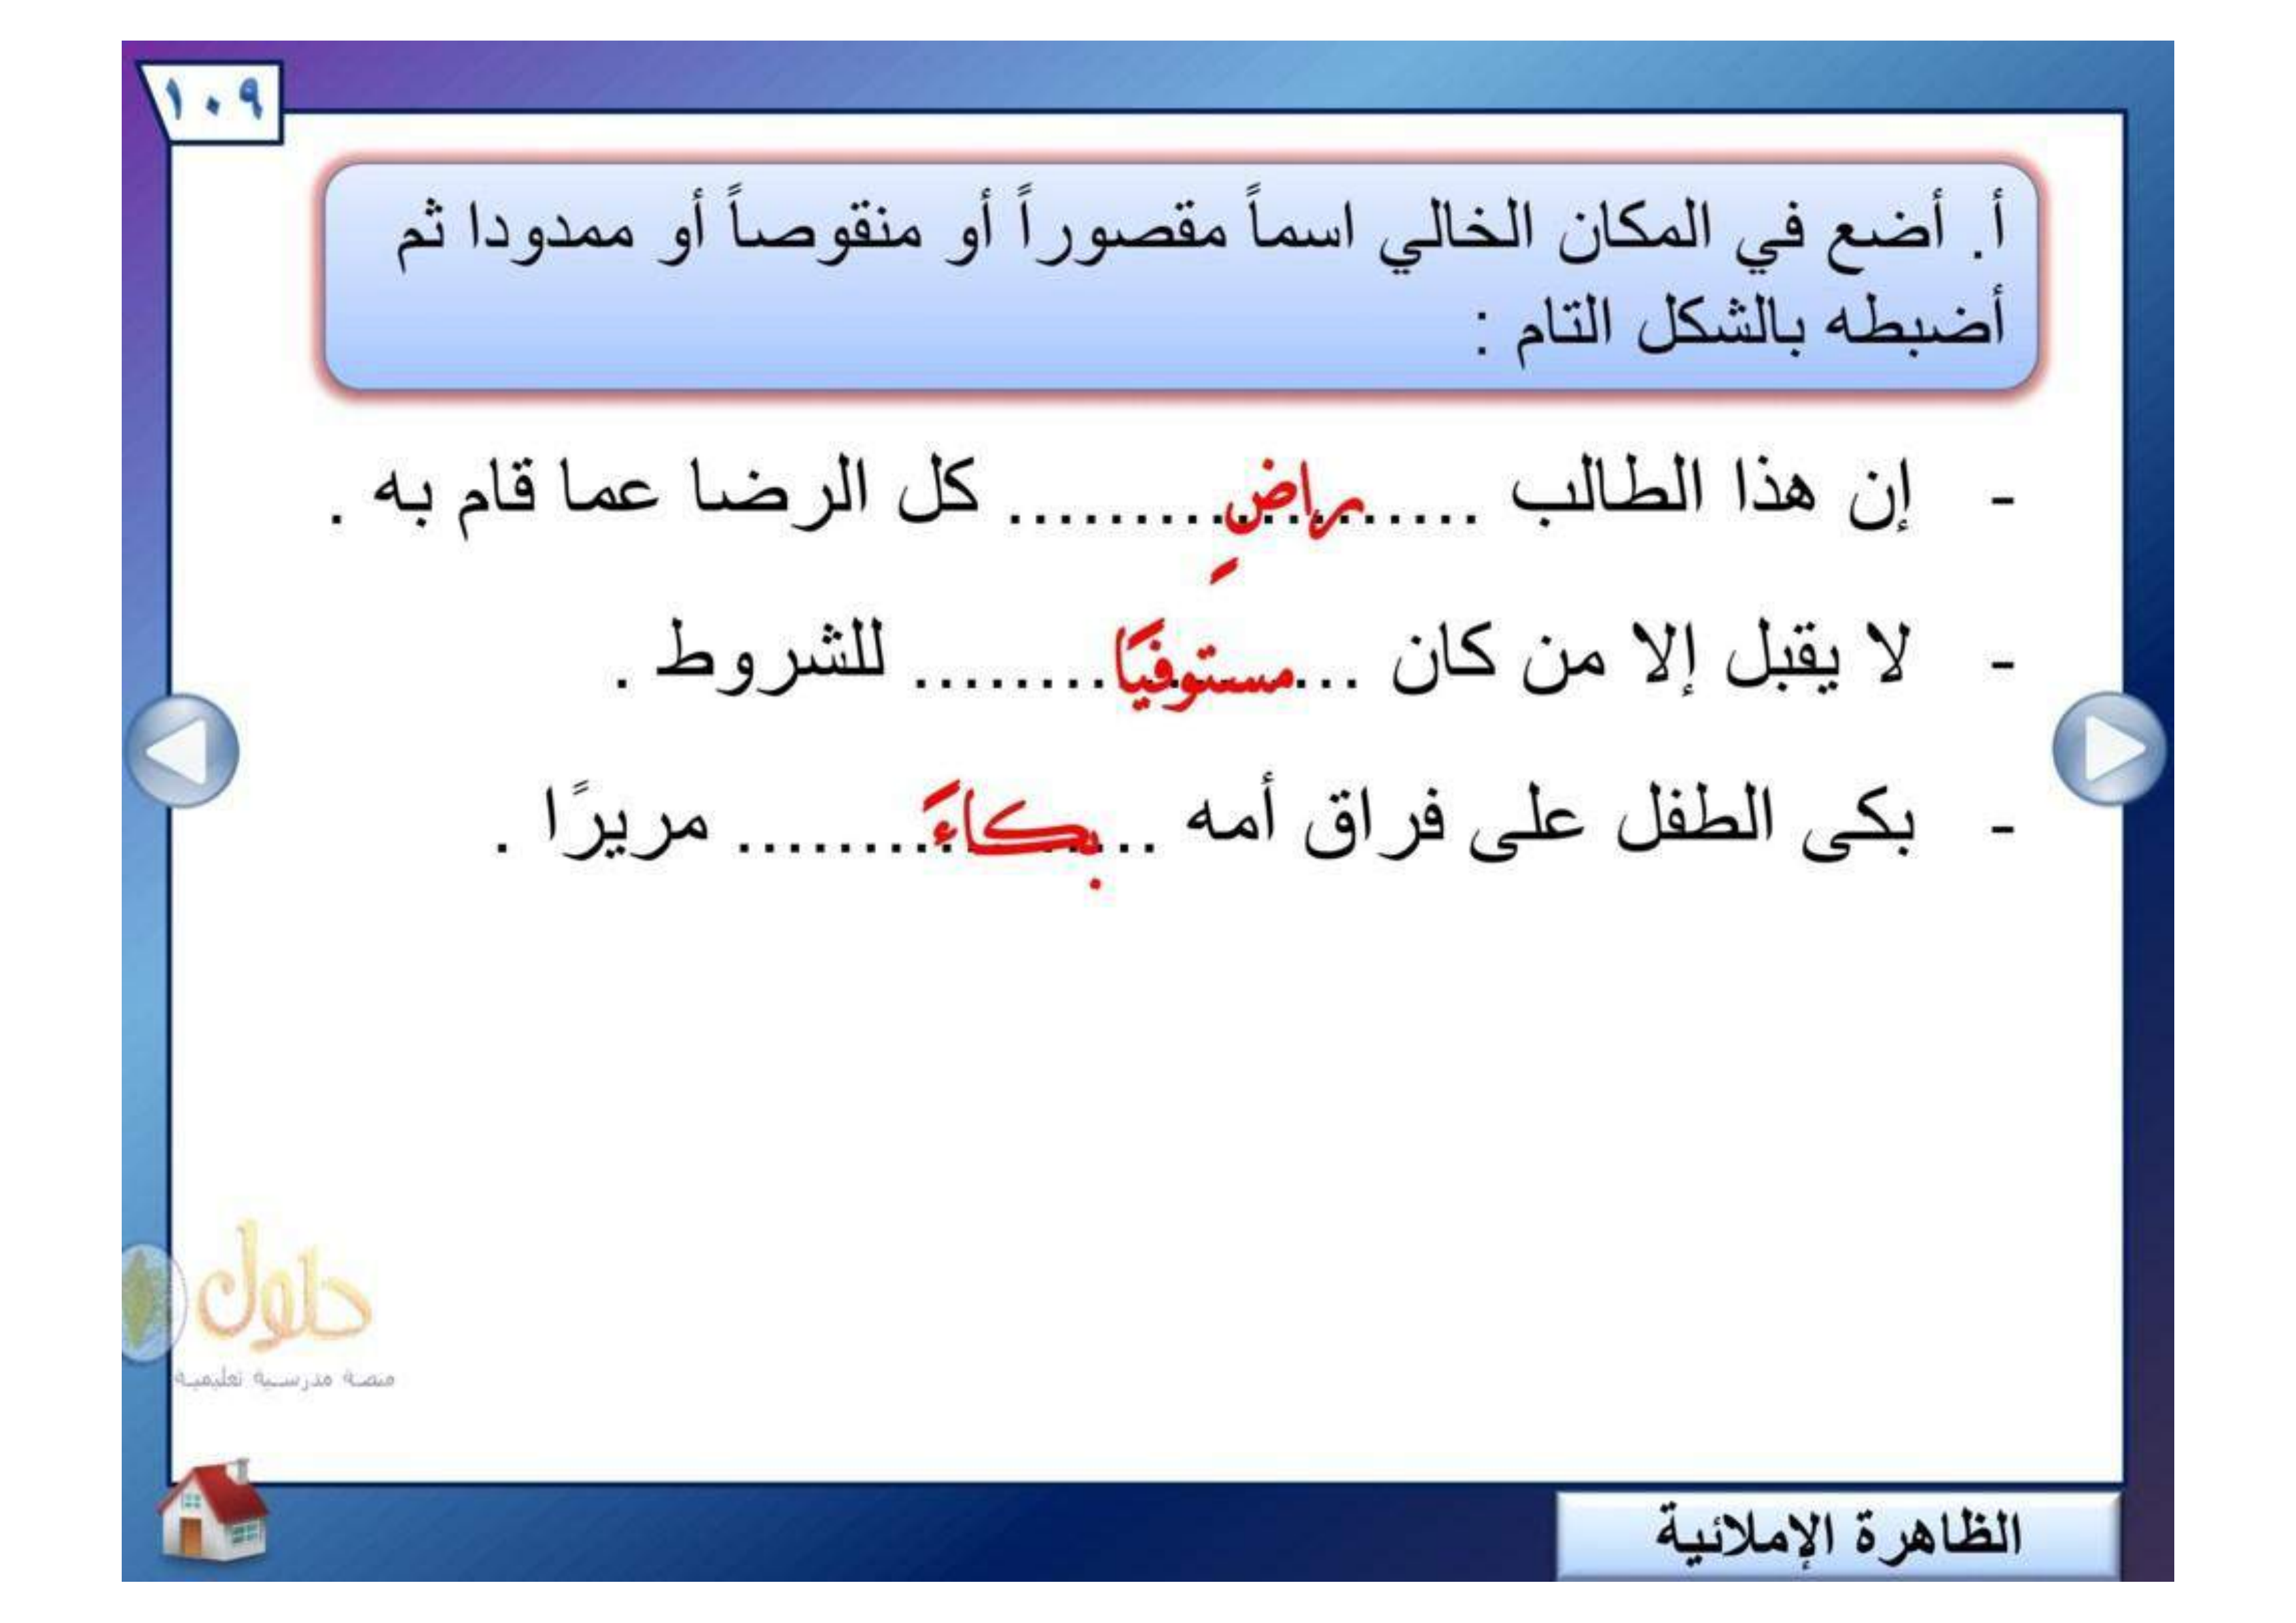 ١٠٩
أ. أضع في المكان الخالي اسماً مقصوراً أو منقوصاً أو ممدودا ثم
أضبطه بالشكل التام :
- إن هذا الطالب ......راضٍ......... كل الرضا عما قام به .
- لا يقبل إلا من كان ...مستوفيًا........ للشروط .
- بكى الطفل على فراق أمه ..بكاءً......... مريرًا .
حلول
منصة مدرسية تعليمية
الظاهرة الإملائية